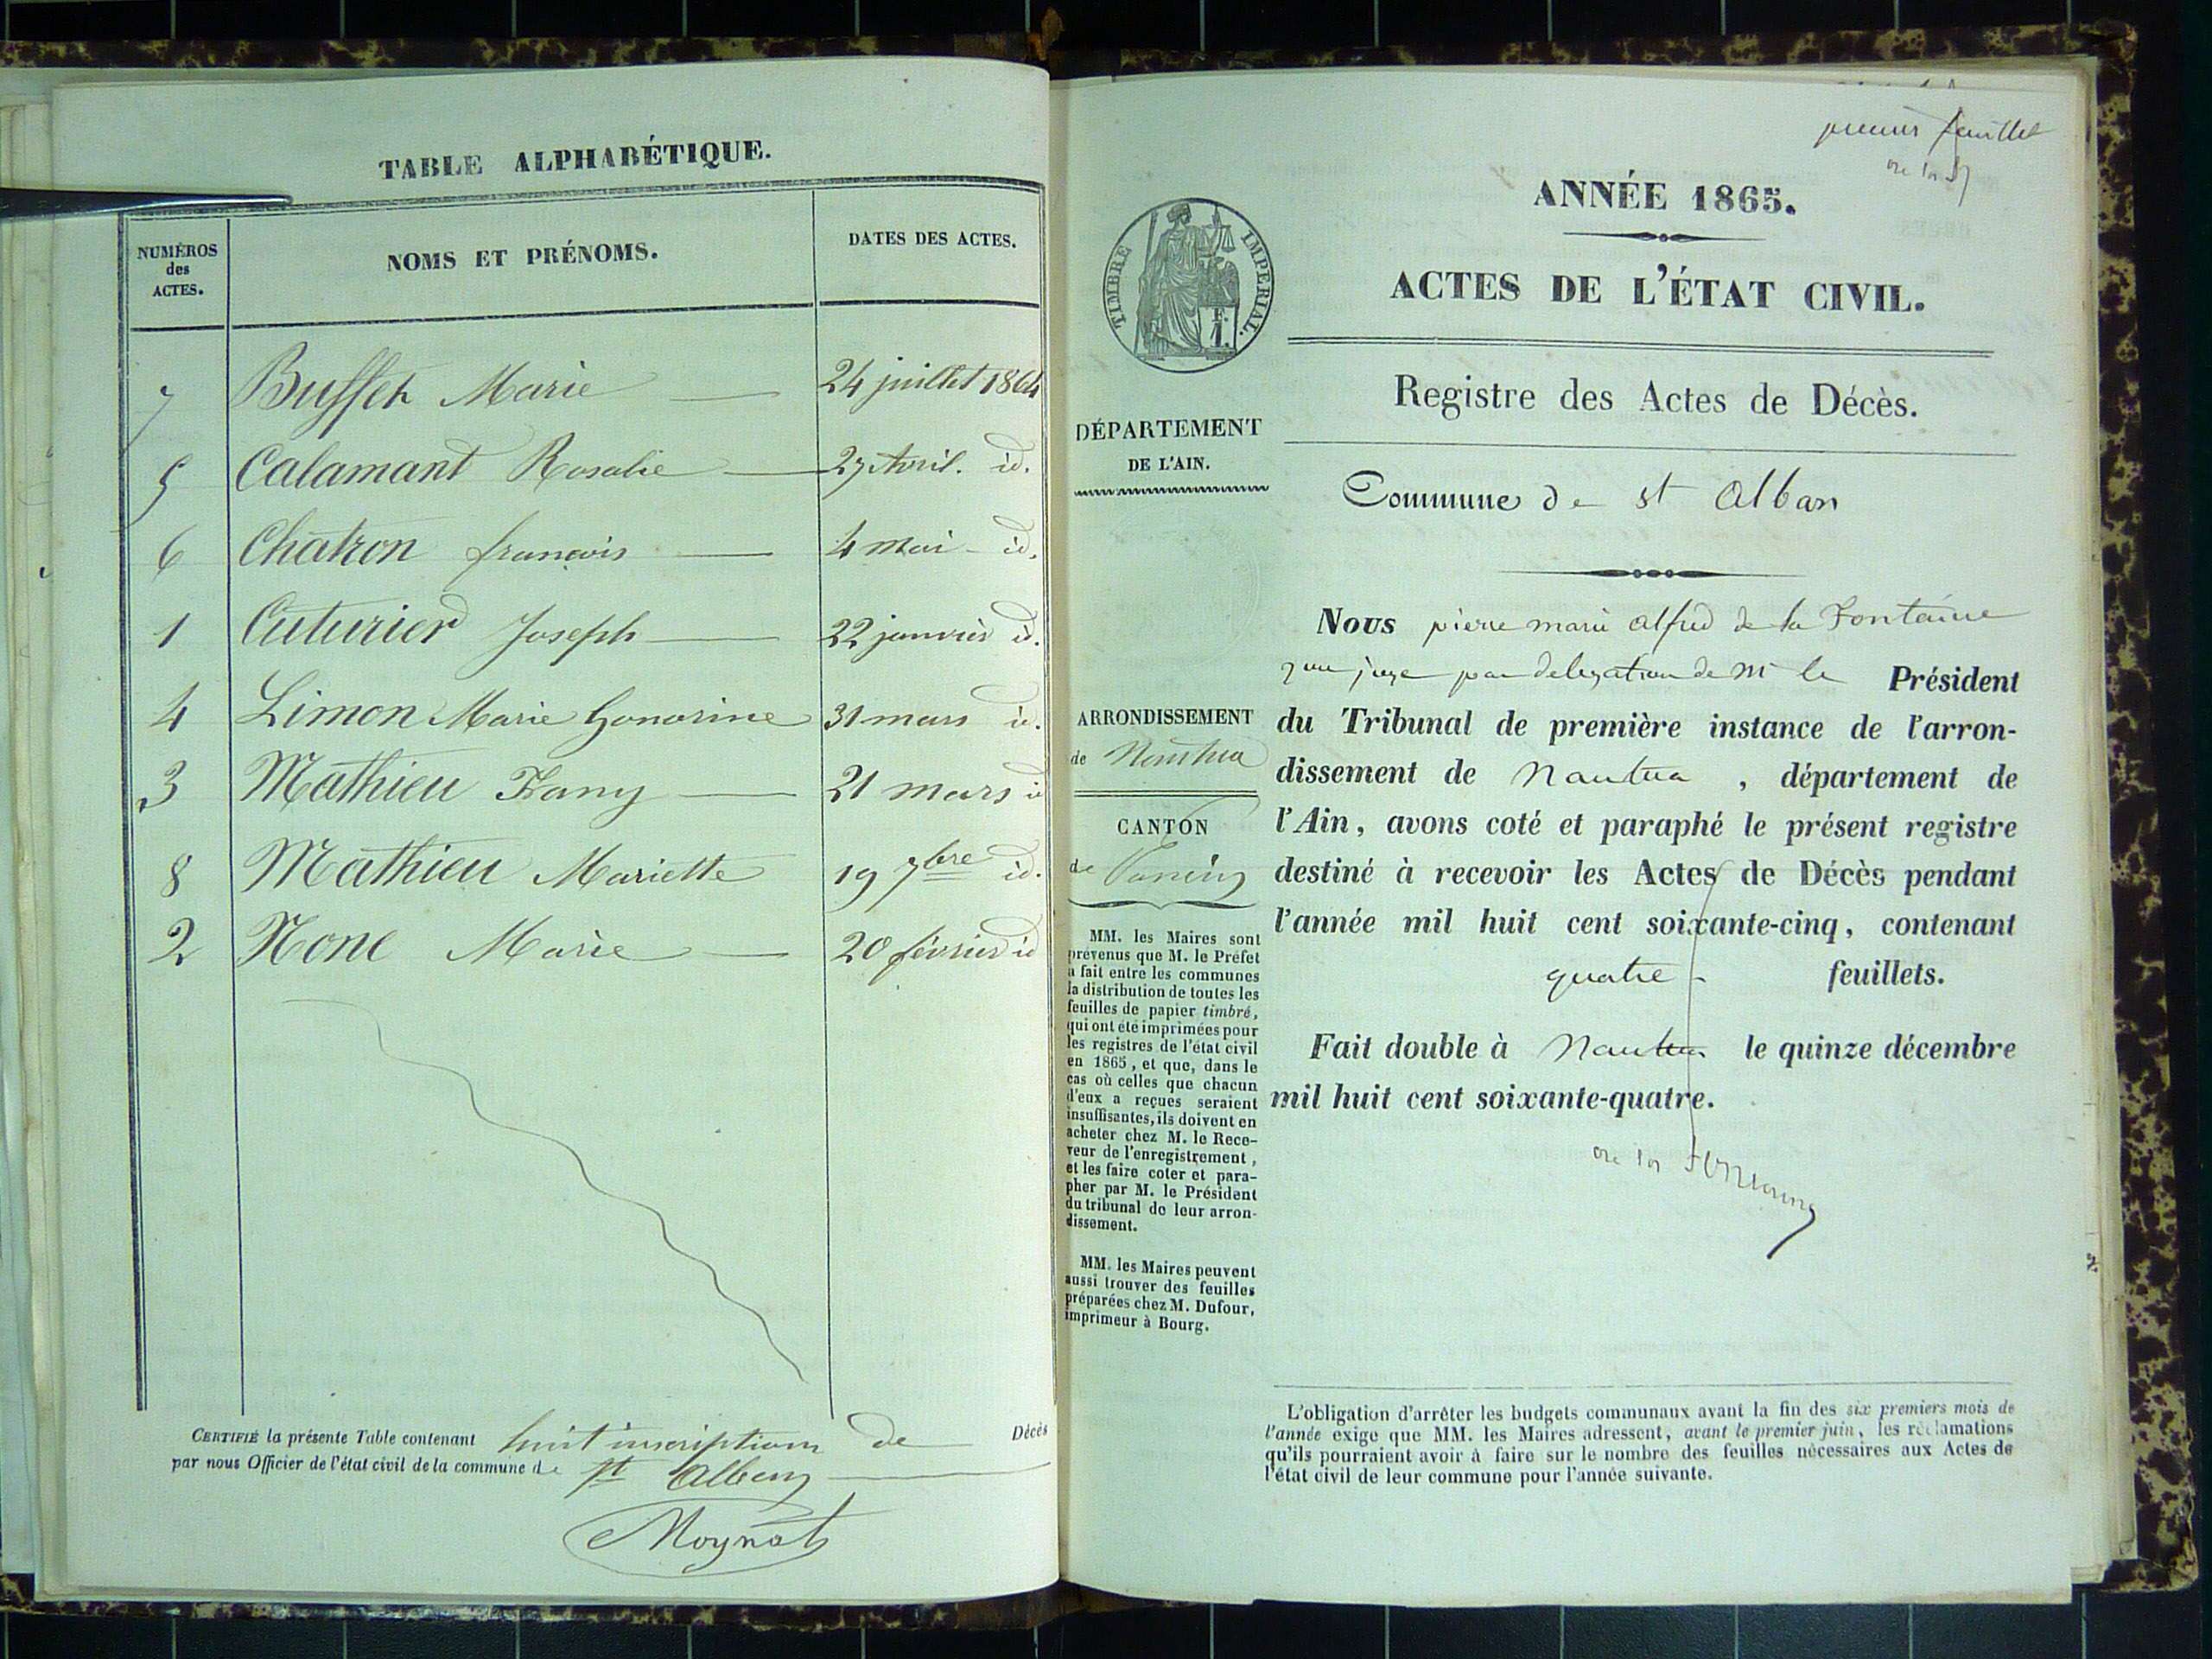 TABLE ALPHABÉTIQUE.
NUMÉROS
des
ACTES.
NOMS ET PRÉNOMS.
DATES DES ACTES.
7 Buffet Marie 24 juillet 1864
5 Calamant Rosalie 27 Avril. id.
6 Chatron francois 4 mai id.
1 Cuturier Joseph 22 janvier id.
4 Limon Marie Honorine 31 mars id.
3 Mathieu Fany 21 mars id
8 Mathieu Mariette 19 7bre id.
2 None Marie 20 février id
CERTIFIÉ la présente Table contenant huit inscriptions de Décès
par nous Officier de l'état civil de la commune de St Alban
Moynat
premier feuillet
ANNÉE 1865.
ACTES DE L'ÉTAT CIVIL.
Registre des Actes de Décès.
Commune de st Alban
TIMBRE IMPERIAL.
DÉPARTEMENT
DE L'AIN.
ARRONDISSEMENT
de Nantua
CANTON
de Poncin
MM. les Maires sont
prévenus que M. le Préfet
a fait entre les communes
la distribution de toutes les
feuilles de papier timbré,
qui ont été imprimées pour
les registres de l'état civil
en 1865, et que, dans le
cas où celles que chacun
d'eux a reçues seraient
insuffisantes, ils doivent en
acheter chez M. le Rece-
veur de l'enregistrement,
et les faire coter et para-
pher par M. le Président
du tribunal de leur arron-
dissement.
MM. les Maires peuvent
aussi trouver des feuilles
préparées chez M. Dufour,
imprimeur à Bourg.
Nous pierre marie alfred de la Fontaine
juge par delegation de Mr le Président
du Tribunal de première instance de l'arron-
dissement de Nantua, département de
l'Ain, avons coté et paraphé le présent registre
destiné à recevoir les Actes de Décès pendant
l'année mil huit cent soixante-cinq, contenant
quatre feuillets.
Fait double à Nantua le quinze décembre
mil huit cent soixante-quatre.
L'obligation d'arrêter les budgets communaux avant la fin des six premiers mois de
l'année exige que MM. les Maires adressent, avant le premier juin, les réclamations
qu'ils pourraient avoir à faire sur le nombre des feuilles nécessaires aux Actes de
l'état civil de leur commune pour l'année suivante.